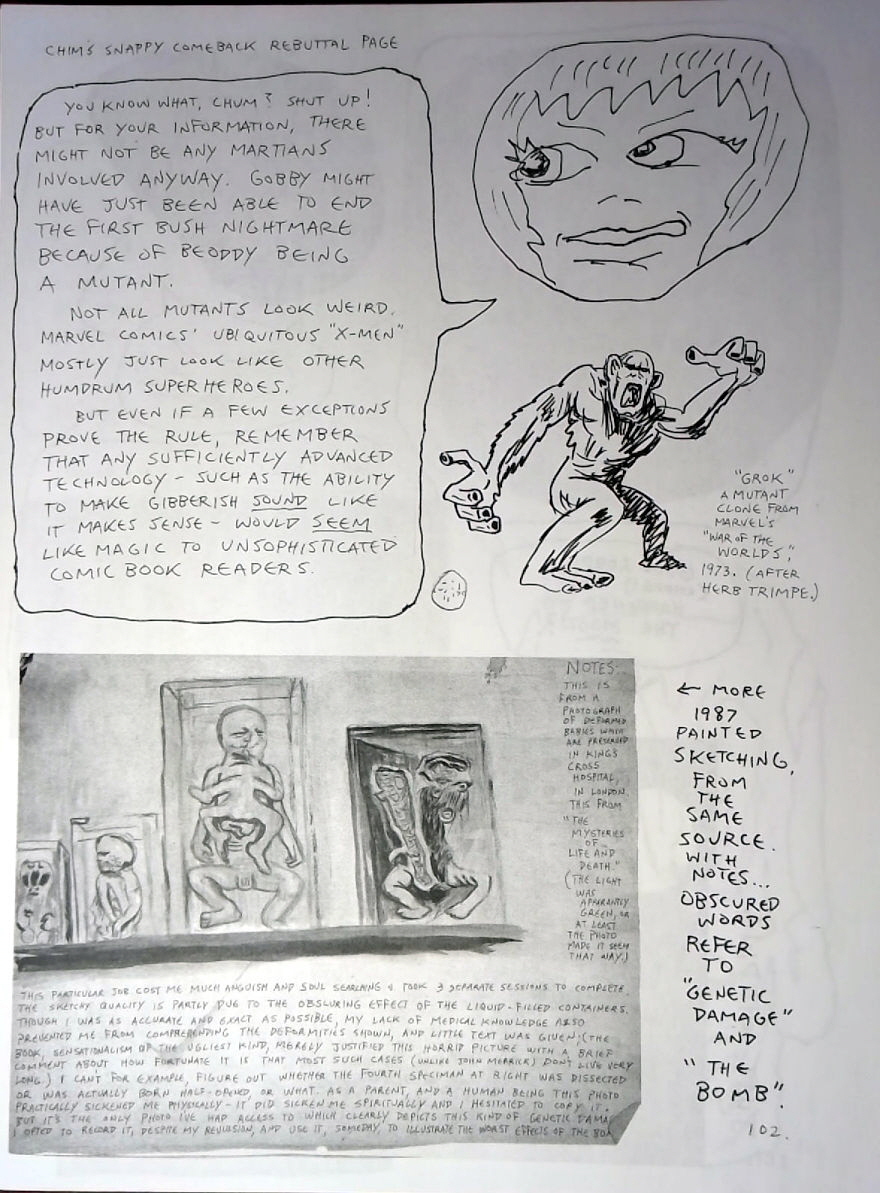 CHIM'S SNAPPY COMEBACK REBUTTAL PAGE
YOU KNOW WHAT, CHUM? SHUT UP!
BUT FOR YOUR INFORMATION, THERE
MIGHT NOT BE ANY MARTIANS
INVOLVED ANYWAY. GOBBY MIGHT
HAVE JUST BEEN ABLE TO END
THE FIRST BUSH NIGHTMARE
BECAUSE OF BEODDY BEING
A MUTANT.
NOT ALL MUTANTS LOOK WEIRD.
MARVEL COMICS' UBIQUITOUS "X-MEN"
MOSTLY JUST LOOK LIKE OTHER
HUMDRUM SUPERHEROES.
BUT EVEN IF A FEW EXCEPTIONS
PROVE THE RULE, REMEMBER
THAT ANY SUFFICIENTLY ADVANCED
TECHNOLOGY - SUCH AS THE ABILITY
TO MAKE GIBBERISH SOUND LIKE
IT MAKES SENSE - WOULD SEEM
LIKE MAGIC TO UNSOPHISTICATED
COMIC BOOK READERS.
"GROK"
A MUTANT
CLONE FROM
MARVEL'S
"WAR OF THE
WORLDS",
1973. (AFTER
HERB TRIMPE.)
NOTES:
THIS IS
FROM A
PHOTOGRAPH
OF DEFORMED
BABIES WHICH
ARE PRESERVED
IN KING'S
CROSS
HOSPITAL,
IN LONDON.
THIS FROM
"THE
MYSTERIES
OF
LIFE AND
DEATH."
(THE LIGHT
WAS
APPARANTLY
GREEN, OR
AT LEAST
THE PHOTO
MADE IT SEEM
THAT WAY.)
THIS PARTICULAR JOB COST ME MUCH ANGUISH AND SOUL SEARCHING & TOOK 3 SEPARATE SESSIONS TO COMPLETE.
THE SKETCHY QUALITY IS PARTLY DUE TO THE OBSLURING EFFECT OF THE LIQUID-FILLED CONTAINERS.
THOUGH I WAS AS ACCURATE AND EXACT AS POSSIBLE, MY LACK OF MEDICAL KNOWLEDGE ALSO
PREVENTED ME FROM COMPREHENDING THE DEFORMITIES SHOWN, AND LITTLE TEXT WAS GIVEN; (THE
BOOK, SENSATIONALISM OF THE UGLIEST KIND, MERELY JUSTIFIED THIS HORRID PICTURE WITH A BRIEF
COMMENT ABOUT HOW FORTUNATE IT IS THAT MOST SUCH CASES (UNLIKE JOHN MERRICK) DON'T LIVE VERY
LONG.) I CAN'T FOR EXAMPLE, FIGURE OUT WHETHER THE FOURTH SPECIMAN AT RIGHT WAS DISSECTED
OR WAS ACTUALLY BORN HALF-OPENED, OR WHAT. AS A PARENT, AND A HUMAN BEING THIS PHOTO
PRACTICALLY SICKENED ME PHYSICALLY - IT DID SICKEN ME SPIRITUALLY AND I HESITATED TO COPY IT.
BUT IT'S THE ONLY PHOTO I'VE HAD ACCESS TO WHICH CLEARLY DEPICTS THIS KIND OF GENETIC DAMA
I OPTED TO RECORD IT, DESPITE MY REVULSION, AND USE IT, SOMEDAY, TO ILLUSTRATE THE WORST EFFECTS OF THE BOM
← MORE
1987
PAINTED
SKETCHING,
FROM
THE
SAME
SOURCE.
WITH
NOTES...
OBSCURED
WORDS
REFER
TO
"GENETIC
DAMAGE"
AND
"THE
BOMB".
102.